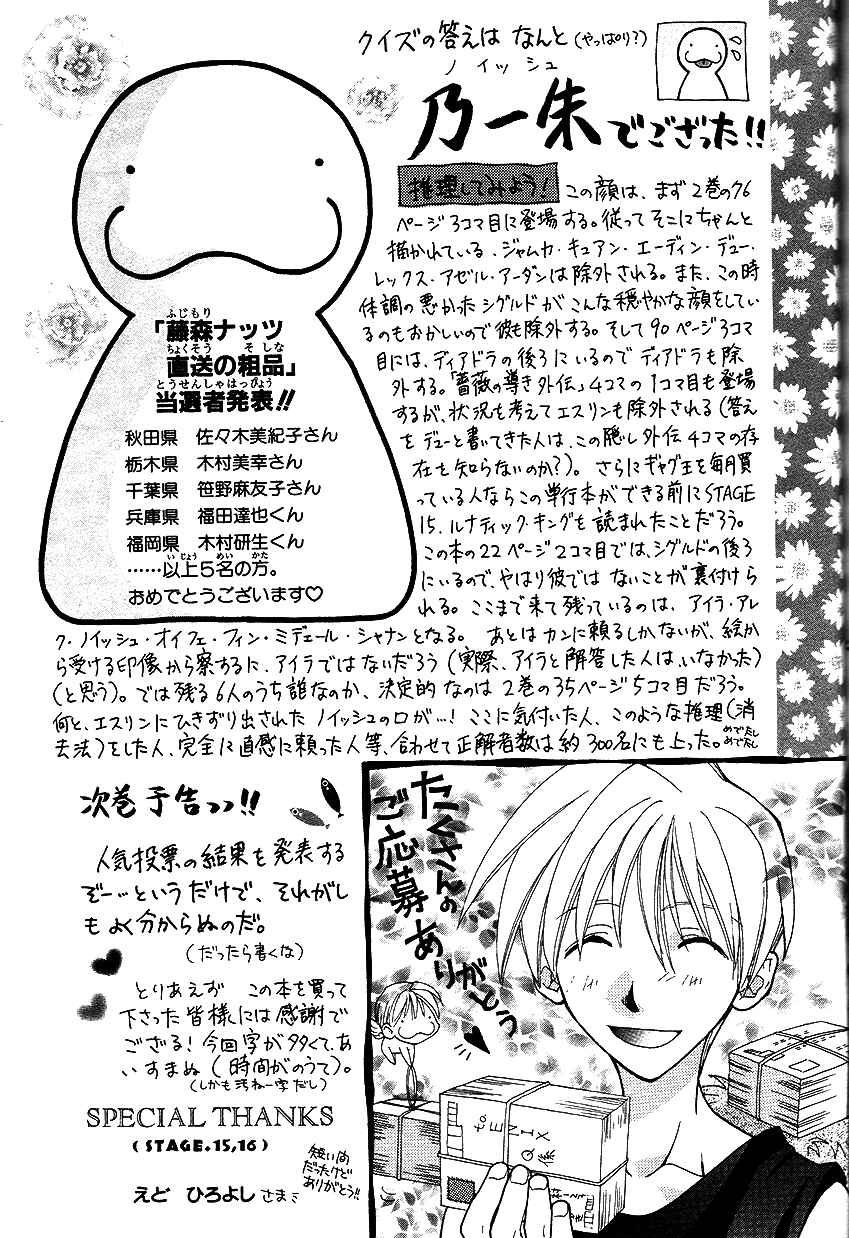 クイズの答えは なんと (やっぱり?)
ノイッシュ
乃一朱でござった!!
推理してみよう!
この顔は、まず2巻の76
ページ3コマ目に登場する。従ってそこにちゃんと
描かれている、ジャムカ・キュアン・エーディン・デュー・
レックス・アゼル・アーダンは除外される。また、この時
体調の悪かったシグルドがこんな穏やかな顔をしてい
るのもおかしいので彼も除外する。そして90ページ3コマ
目には、ディアドラの後ろにいるのでディアドラも除
外する。「薔薇の導き外伝」4コマの1コマ目も登場
するが、状況を考えてエスリンも除外される(答え
をデューと書いてきた人は、この隠し外伝4コマの存
在を知らないのか?)。さらにギャグ王を毎月買
っている人ならこの単行本ができる前にSTAGE
15.ルナティック・キングを読まれたことだろう。
この本の22ページ2コマ目では、シグルドの後ろ
にいるので、やはり彼ではないことが裏付けら
れる。ここまで来て残っているのは、アイラ・アレ
ク・ノイッシュ・オイフェ・フィン・ミデェール・シャナンとなる。 あとはカンに頼るしかないが、絵か
ら受ける印像から察するに、アイラではないだろう(実際、アイラと解答した人は、いなかった)
(と思う)。では残る6人のうち誰なのか、決定的なのは2巻の35ページ5コマ目だろう。
何と、エスリンにひきずり出されたノイッシュの口が…!ここに気付いた人、このような推理(消
去法)をした人、完全に直感に頼った人等、合わせて正解者数は約300名にも上った。めでたしめでたし
ふじもり
「藤森ナッツ
ちょくそう そしな
直送の粗品」
とうせんしゃはっぴょう
当選者発表!!
秋田県 佐々木美紀子さん
栃木県 木村美幸さん
千葉県 笹野麻友子さん
兵庫県 福田達也くん
福岡県 木村研生くん
いじょう めい かた
……以上5名の方。
おめでとうございます♡
次巻予告っっ!!
人気投票の結果を発表する
ぞー…というだけで、それがし
もよく分からぬのだ。
(だったら書くな)
とりあえず この本を買って
下さった皆様には感謝で
ござる!今回字が多くて、あ
いすまぬ(時間がのうて)。
(しかも汚ねー字だし)
SPECIAL THANKS
(STAGE.15,16)
えど ひろよし さま
短い間
だったけど
ありがとう!!
たくさんの
ご応募
ありがとう
to
ENIX
Q係